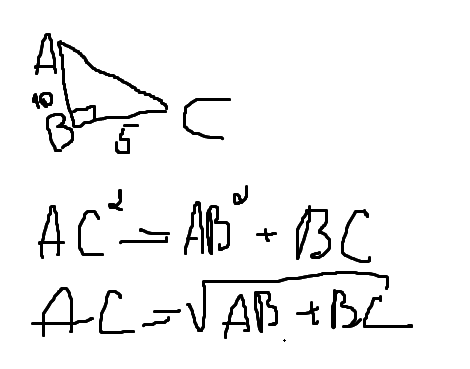 A
10
B
5
C
AC² = AB² + BC
AC = √AB + BC